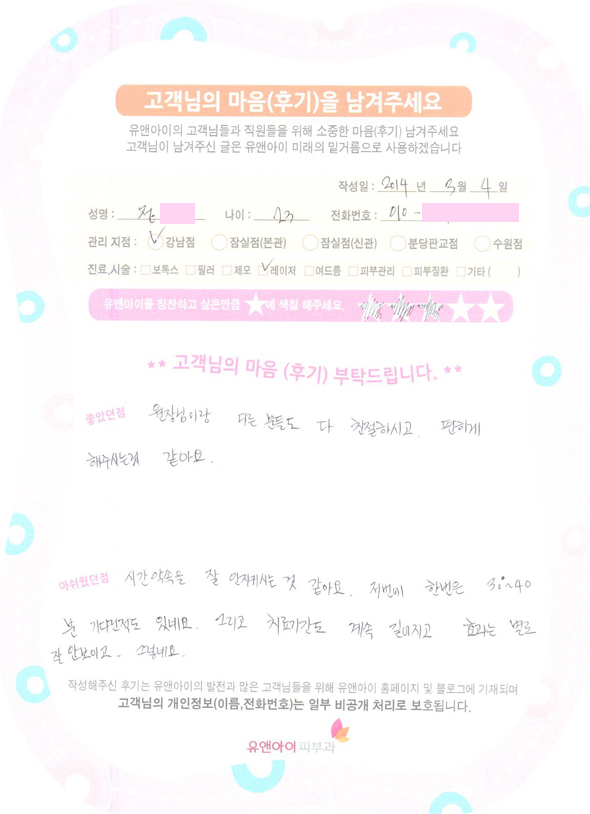 고객님의 마음(후기)을 남겨주세요
유앤아이의 고객님들과 직원들을 위해 소중한 마음(후기) 남겨주세요
고객님이 남겨주신 글은 유앤아이 미래의 밑거름으로 사용하겠습니다
작성일 : 2014 년 3월 4 일
성명 : 전 나이 : 23 전화번호 : 010 -
관리 지점 : 강남점 잠실점(본관) 잠실점(신관) 분당판교점 수원점
진료,시술 : 보톡스 필러 제모 레이저 여드름 피부관리 피부질환 기타 ( )
유앤아이를 칭찬하고 싶은만큼 ★에 색칠 해주세요. ★★★★★
** 고객님의 마음 (후기) 부탁드립니다. **
좋았던점 원장님이랑 다른 분들도 다 친절하시고. 편하게
해주시는것 같아요.
아쉬웠던점 시간약속은 잘 안지키시는 것 같아요. 저번에 한번은 30~40
분 기다린적도 있네요. 그리고 치료기간도 계속 길어지고 효과는 별로
잘 안보이고. 그렇네요.
작성해주신 후기는 유앤아이의 발전과 많은 고객님들을 위해 유앤아이 홈페이지 및 블로그에 기재되며
고객님의 개인정보(이름,전화번호)는 일부 비공개 처리로 보호됩니다.
유앤아이 피부과